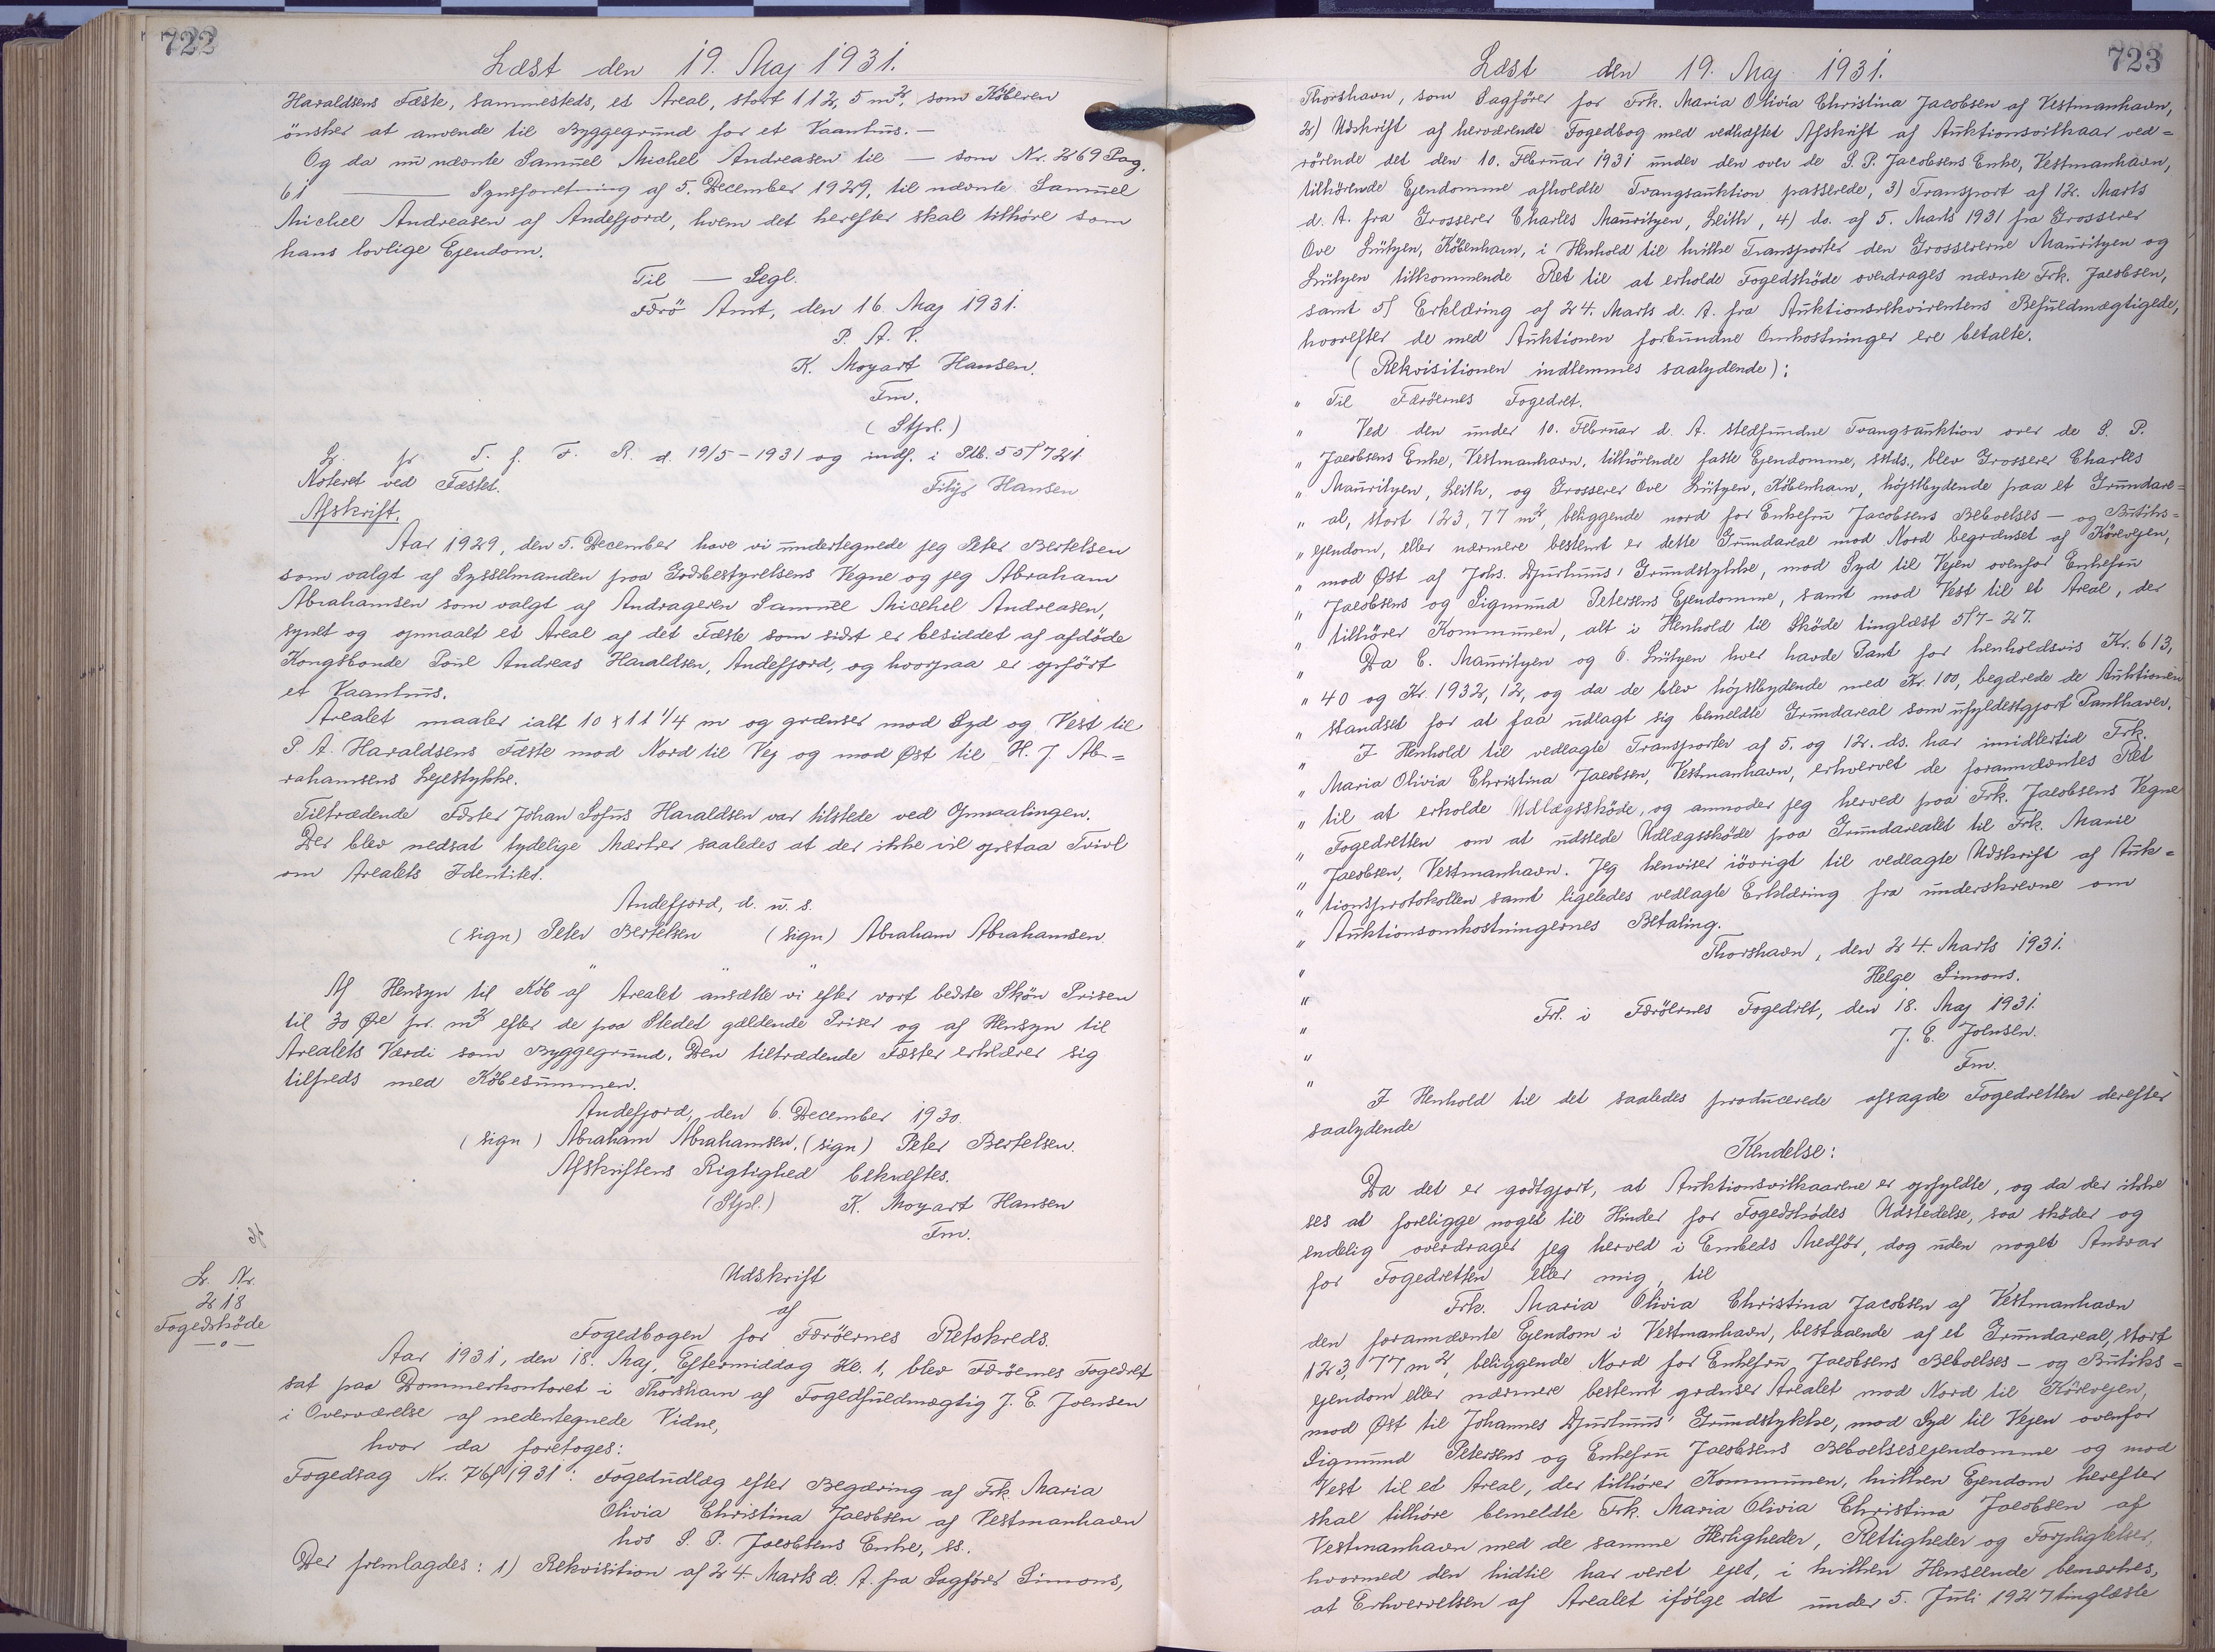 722
Læst den 19. Maj 1931.
Haraldsens Fæste, sammesteds, et Areal, stort 112,5 m², som Köberen
ønsker at anvende til Byggegrund for et Vaanhus. —
Og da nu nævnte Samuel Michel Andreasen til — som Nr. 269 Pag.
61 — Synsforretning af 5. December 1929, til nævnte Samuel
Michel Andreasen af Andefjord, hvem det herefter skal tilhöre som
hans lovlige Ejendom.
Til — Segl.
Færö Amt, den 16. Maj 1931.
P. A. V.
K. Mozart Hansen.
Fm.
(Stpl.)
T. f. F. R. d. 19/5-1931 og indf. i Ptb. 55/721
Noteret ved Fæstet.
Hansen
Afskrift.
Aar 1929, den 5. December have vi undertegnede jeg Peter Bertelsen
som valgt af Sysselmanden paa Godsbestyrelsens Vegne og jeg Abraham
Abrahamsen som valgt af Andrageren Samuel Micehel Andreasen,
synet og opmaalt et Areal af det Fæste som sidst er besiddet af afdöde
Kongsbonde Poul Andreas Haraldsen, Andefjord, og hvorpaa er opfört
et Vaanhus.
Arealet maaler ialt 10 x 11 1/4 m og grænser mod Syd og Vest til
P. A. Haraldsens Fæste mod Nord til Vej og mod Øst til H. J. Ab=
rahamsens Lejestykke.
Tiltrædende Fæster Johan Sofus Haraldsen var tilstede ved Opmaalingen.
Der blev nedsat tydelige Mærker saaledes at der ikke vil opstaa Tvivl
om Arealets Identitet.
Andefjord, d. u. s.
(sign) Peter Bertelsen (sign) Abraham Abrahamsen.
" " "
Af Hensyn til Köb af Arealet ansætte vi efter vort bedste Skön Prisen
til 30 Øre pr. m² efter de paa Stedet gældende Priser og af Hensyn til
Arealets Værdi som Byggegrund. Den tiltrædende Fæster erklærer sig
tilfreds med Köbesummen.
Andefjord, den 6. December 1930.
(sign) Abraham Abrahamsen. (sign) Peter Bertelsen.
Afskriftens Rigtighed bekræftes.
(Stpl.) K. Mozart Hansen
Fm.
L. Nr.
218
Fogedsköde
—o—
Udskrift
af
Fogedbogen for Færöernes Retskreds.
Aar 1931, den 18. Maj, Eftermiddag Kl. 1, blev Færöernes Fogedret
sat paa Dommerkontoret i Thorshavn af Fogedfuldmægtig J. E. Joensen
i Overværelse af nedentegnede Vidne,
hvor da foretoges:
Fogedsag Nr. 76/1931: Fogedudlæg efter Begæring af Frk. Maria
Olivia Christina Jacobsen af Vestmanhavn
hos S. P. Jacobsens Enke, ss.
Der fremlagdes: 1) Rekvisition af 24. Marts d. A. fra Sagförer Simons,
723
Læst den 19. Maj 1931.
Thorshavn, som Sagförer for Frk. Maria Olivia Christina Jacobsen af Vestmanhavn,
2) Udskrift af herværende Fogedbog med vedhæftet Afskrift af Auktionsvilkaar ved=
rörende det den 10. Februar 1931 under den over de S. P. Jacobsens Enke, Vestmanhavn,
tilhörende Ejendomme afholdte Tvangsauktion passerede, 3) Transport af 12. Marts
d. A. fra Grosserer Charles Mauritzen, Leith, 4) do. af 5. Marts 1931 fra Grosserer
Ove Lützen, Köbenhavn, i Henhold til hvilke Transporter den Grossererne Mauritzen og
Lützen tilkommende Ret til at erholde Fogedsköde overdrages nævnte Frk. Jacobsen,
samt 5) Erklæring af 24. Marts d. A. fra Auktionsrekvirentens Befuldmægtigede,
hvorefter de med Auktionen forbundne Omkostninger ere betalte.
(Rekvisitionen indlemmes saalydende):
" Til Færöernes Fogedret.
" Ved den under 10. Februar d. A. stedfundne Tvangsauktion over de S. P.
" Jacobsens Enke, Vestmanhavn, tilhörende faste Ejendomme, sstds., blev Grosserer Charles
" Mauritzen, Leith, og Grosserer Ove Lützen, Köbenhavn, höjstbydende paa et Grundare=
" al, stort 123,77 m², beliggende nord for Enkefru Jacobsens Beboelses- og Butiks=
" ejendom, eller nærmere bestemt er dette Grundareal mod Nord begrænset af Körevejen,
" mod Øst af Johs. Djurhuus' Grundstykke, mod Syd til Vejen ovenfor Enkefru
" Jacobsens og Sigmund Petersens Ejendomme, samt mod Vest til et Areal, der
" tilhörer Kommunen, alt i Henhold til Sköde tinglæst 5/7-27.
" Da C. Mauritzen og O. Lützen hver havde Pant for henholdsvis Kr. 613,
" 40 og Kr. 1932,12, og da de blev höjstbydende med Kr. 100, begærede de Auktionen
" standset for at faa udlagt sig bemeldte Grundareal som ufyldestgjort Panthaver.
" I Henhold til vedlagte Transporter af 5. og 12. ds. har imidlertid Frk.
" Maria Olivia Christina Jacobsen, Vestmanhavn, erhvervet de forannævntes Ret
" til at erholde Udlægssköde, og anmoder jeg herved paa Frk. Jacobsens Vegne
" Fogedretten om at udstede Udlægssköde paa Grundarealet til Frk. Marie
" Jacobsen, Vestmanhavn. Jeg henviser iövrigt til vedlagte Udskrift af Auk=
" tionsprotokollen samt ligeledes vedlagte Erklæring fra underskrevne om
" Auktionsomkostningernes Betaling.
Thorshavn, den 24. Marts 1931.
" Helge Simons.
" Frl. i Færöernes Fogedret, den 18. Maj 1931.
" J. E. Joensen.
" Fm.
"
I Henhold til det saaledes producerede afsagde Fogedretten derefter
saalydende
Kendelse:
Da det er godtgjort, at Auktionsvilkaarene er opfyldte, og da der ikke
ses at foreligge noget til Hinder for Fogedsködes Udstedelse, saa sköder og
endelig overdrager jeg herved i Embeds Medför, dog uden noget Ansvar
for Fogedretten eller mig, til
Frk. Maria Olivia Christina Jacobsen af Vestmanhavn
den forannævnte Ejendom i Vestmanhavn, bestaaende af et Grundareal, stort
123,77 m², beliggende Nord for Enkefru Jacobsens Beboelses- og Butiks=
ejendom eller nærmere bestemt grænser Arealet mod Nord til Körevejen,
mod Øst til Johannes Djurhuus' Grundstykke, mod Syd til Vejen ovenfor
Sigmund Petersens og Enkefru Jacobsens Beboelsesejendomme og mod
Vest til et Areal, der tilhörer Kommunen, hvilken Ejendom herefter
skal tilhöre bemeldte Frk. Maria Olivia Christina Jacobsen af
Vestmanhavn med de samme Herligheder, Rettigheder og Forpligtelser,
hvormed den hidtil har været ejet, i hvilken Henseende bemærkes,
at Erhvervelsen af Arealet ifölge det under 5. Juli 1927 tinglæste